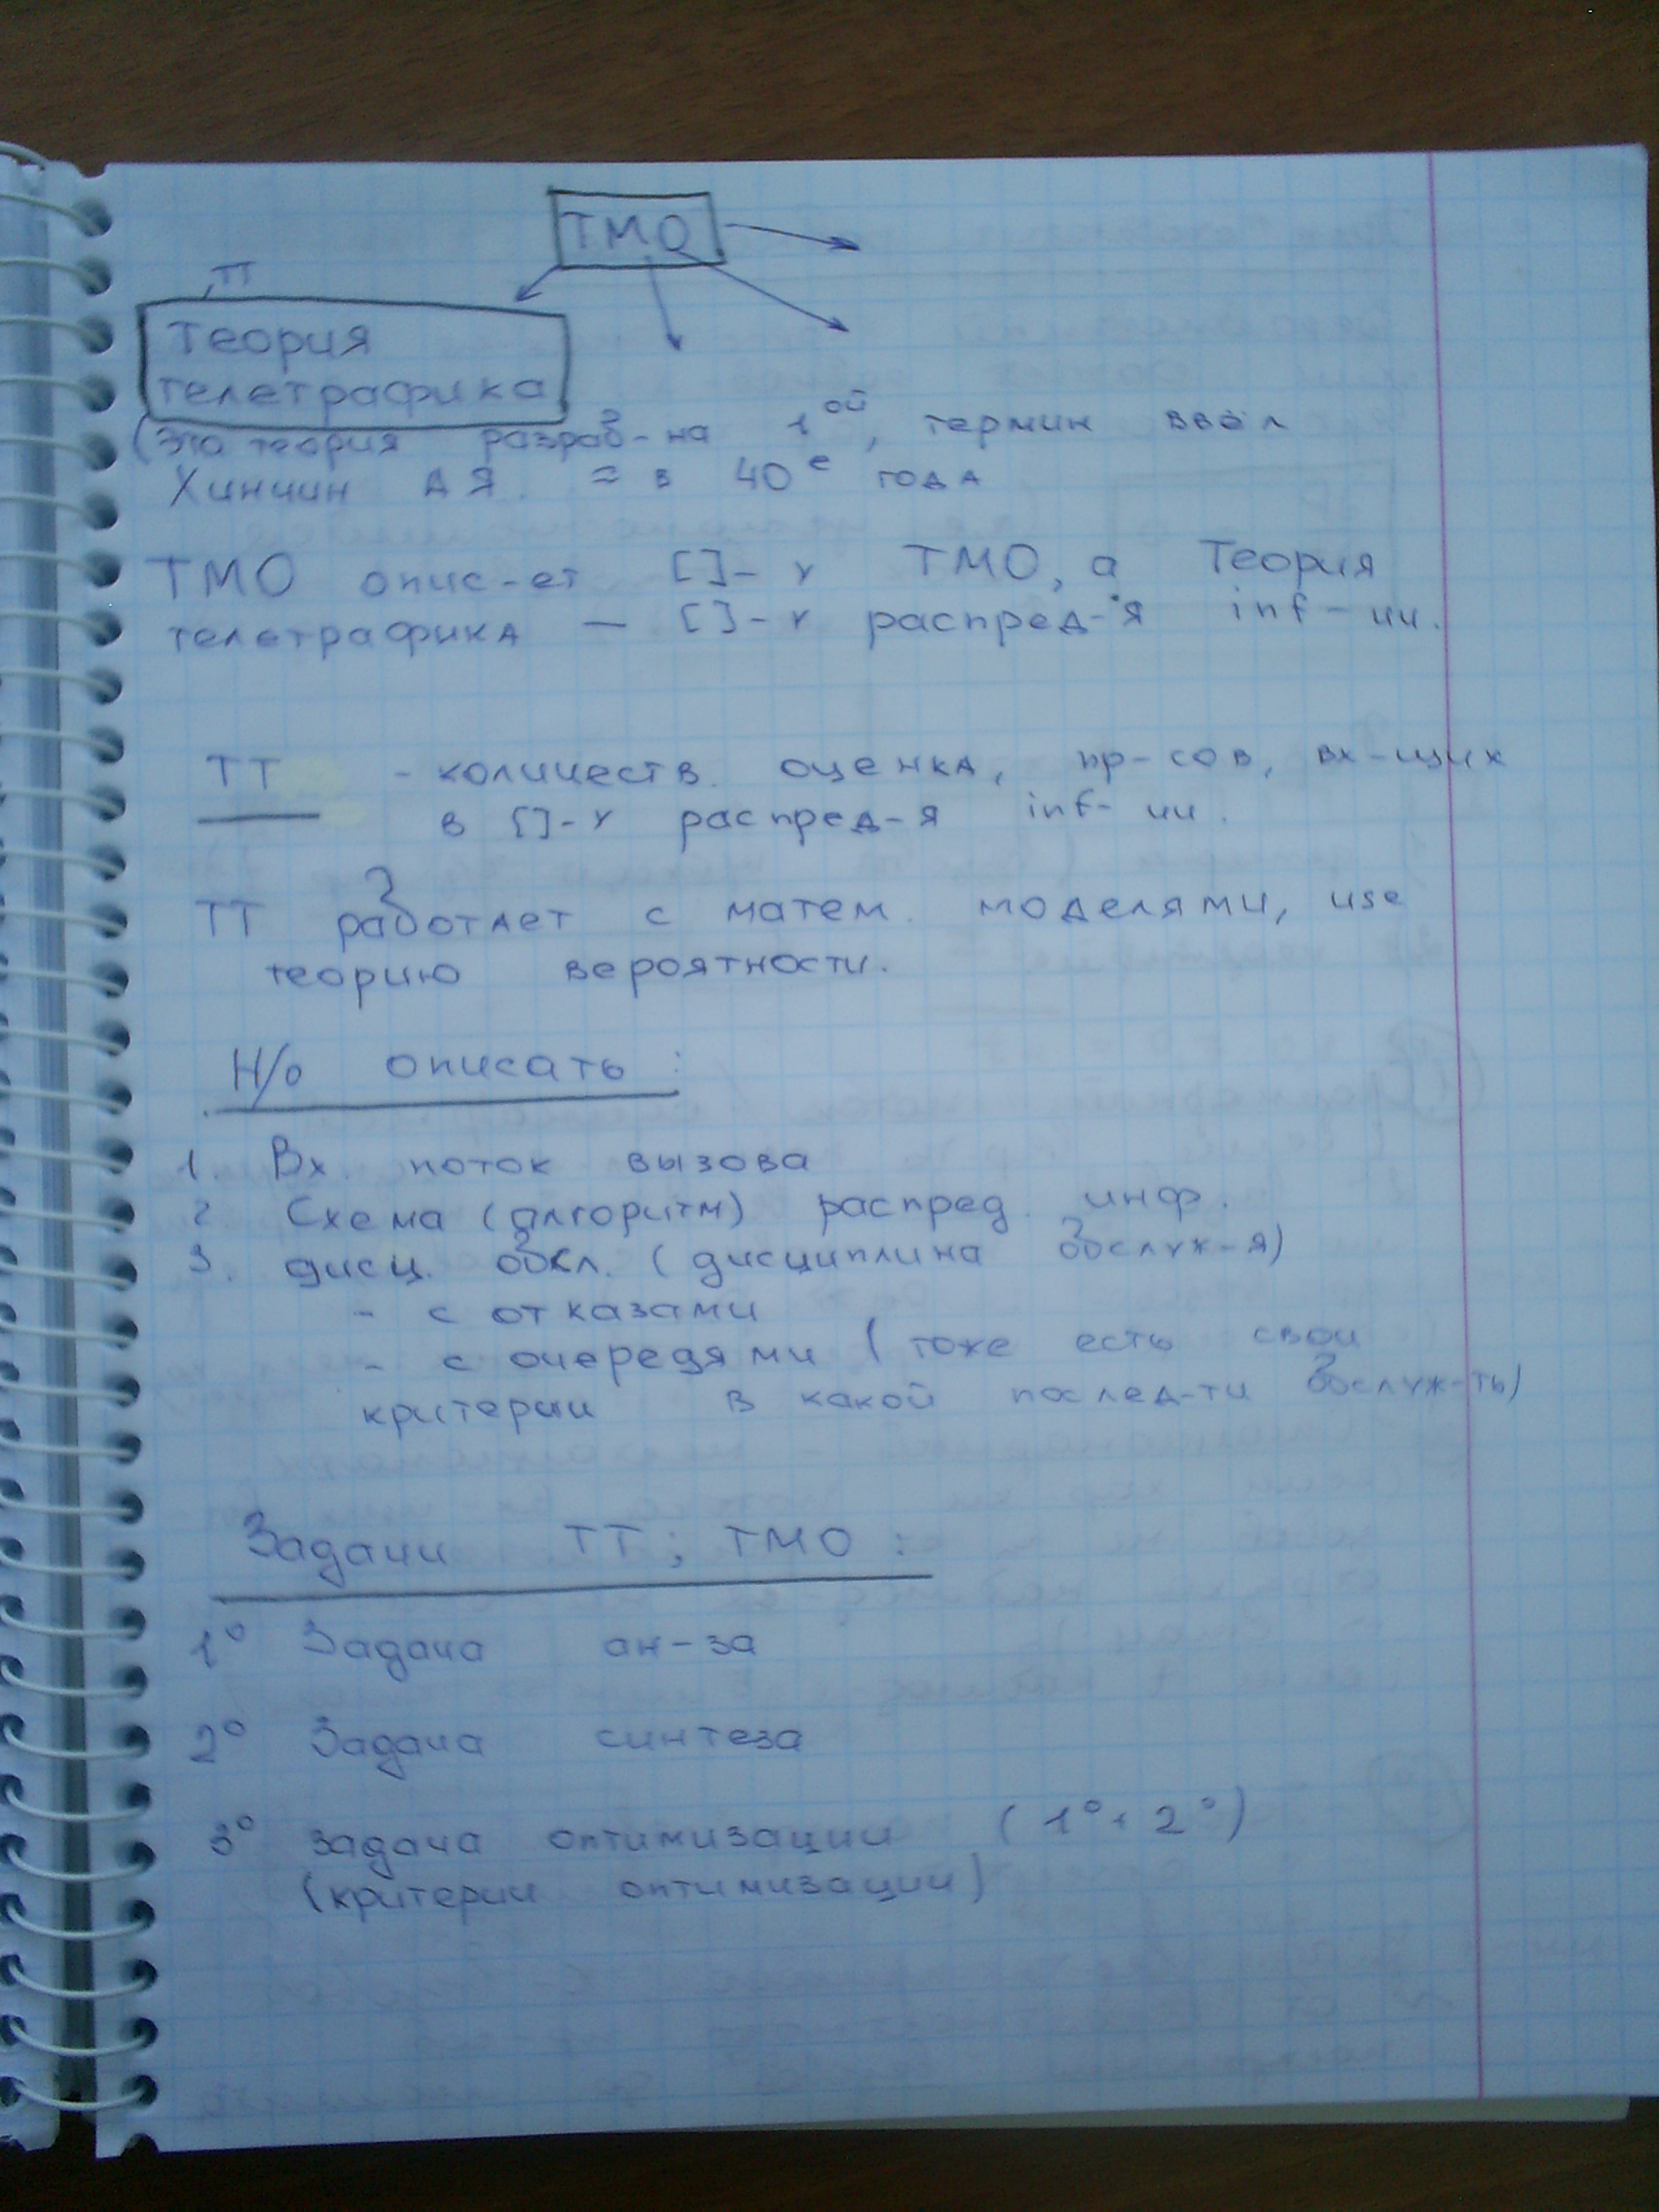 ТМО
ТТ
Теория
телетрафика
(Эта теория разраб-на 1ой, термин ввёл
Хинчин А Я. ≈ в 40е года
ТМО опис-ет []-у ТМО, а Теория
телетрафика — []-у распред-я inf-ии.
ТТ - количеств. оценка, пр-сов, вх-щих
в []-у распред-я inf-ии.
ТТ работает с матем. моделями, use
теорию вероятности.
Н/о описать:
1. Вх. поток вызова
2 Схема (алгоритм) распред. инф.
3. дисц. обсл. (дисциплина обслуж-я)
- с отказами
- с очередями (тоже есть свои
критерии в какой послед-ти обслуж-ть)
Задачи ТТ; ТМО:
1° Задача ан-за
2° Задача синтеза
3° задача оптимизации (1°+2°)
(критерии оптимизации)